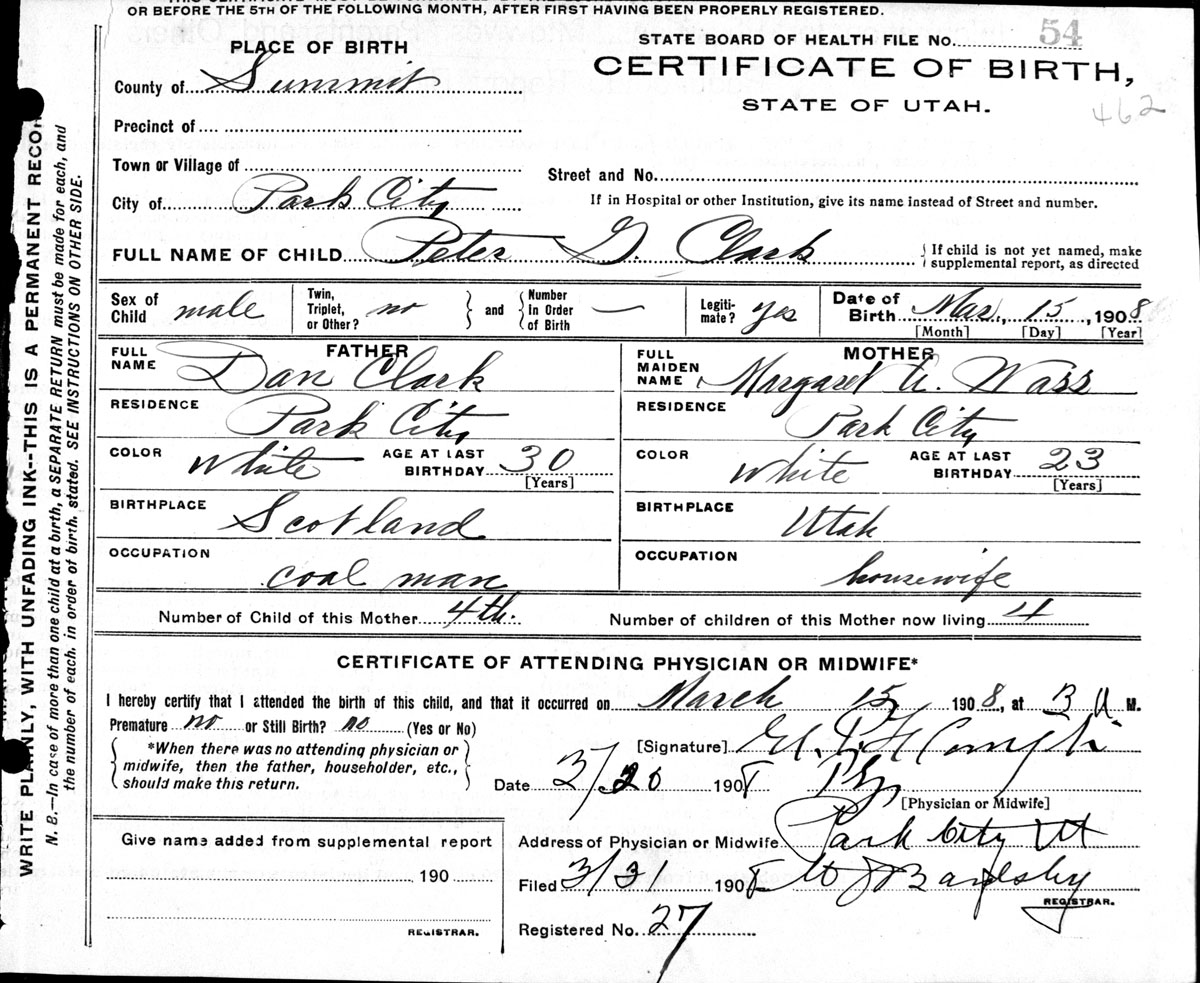 OR BEFORE THE 5TH OF THE FOLLOWING MONTH, AFTER FIRST HAVING BEEN PROPERLY REGISTERED.
WRITE PLAINLY, WITH UNFADING INK--THIS IS A PERMANENT RECOR
N. B.—In case of more than one child at a birth, a SEPARATE RETURN must be made for each, and
the number of each, in order of birth, stated. SEE INSTRUCTIONS ON OTHER SIDE.
STATE BOARD OF HEALTH FILE No. 54
PLACE OF BIRTH
CERTIFICATE OF BIRTH,
County of Summit
STATE OF UTAH.
462
Precinct of
Town or Village of
Street and No.
City of Park City
If in Hospital or other Institution, give its name instead of Street and number.
FULL NAME OF CHILD Peter G. Clark
If child is not yet named, make
supplemental report, as directed
Sex of Child male
Twin, Triplet, or Other? no
and
Number in Order of Birth —
Legiti- mate? yes
Date of Birth Mar. 15, 1908
[Month] [Day] [Year]
FATHER
FULL NAME Dan Clark
RESIDENCE
Park City
COLOR White
AGE AT LAST BIRTHDAY 30
[Years]
BIRTHPLACE
Scotland
OCCUPATION
coal man
MOTHER
FULL MAIDEN NAME Margaret A. Wass
RESIDENCE
Park City
COLOR white
AGE AT LAST BIRTHDAY 23
[Years]
BIRTHPLACE
Utah
OCCUPATION
housewife
Number of Child of this Mother 4th.
Number of children of this Mother now living 4
CERTIFICATE OF ATTENDING PHYSICIAN OR MIDWIFE*
I hereby certify that I attended the birth of this child, and that it occurred on March 15 1908, at 3 A. M.
Premature no or Still Birth? no (Yes or No)
*When there was no attending physician or
midwife, then the father, householder, etc.,
should make this return.
[Signature]
Date 3/20 1908
[Physician or Midwife]
Address of Physician or Midwife Park City Ut
Filed 3/31 1908 Bardsley
REGISTRAR.
Registered No. 27
Give name added from supplemental report
, 190
REGISTRAR.